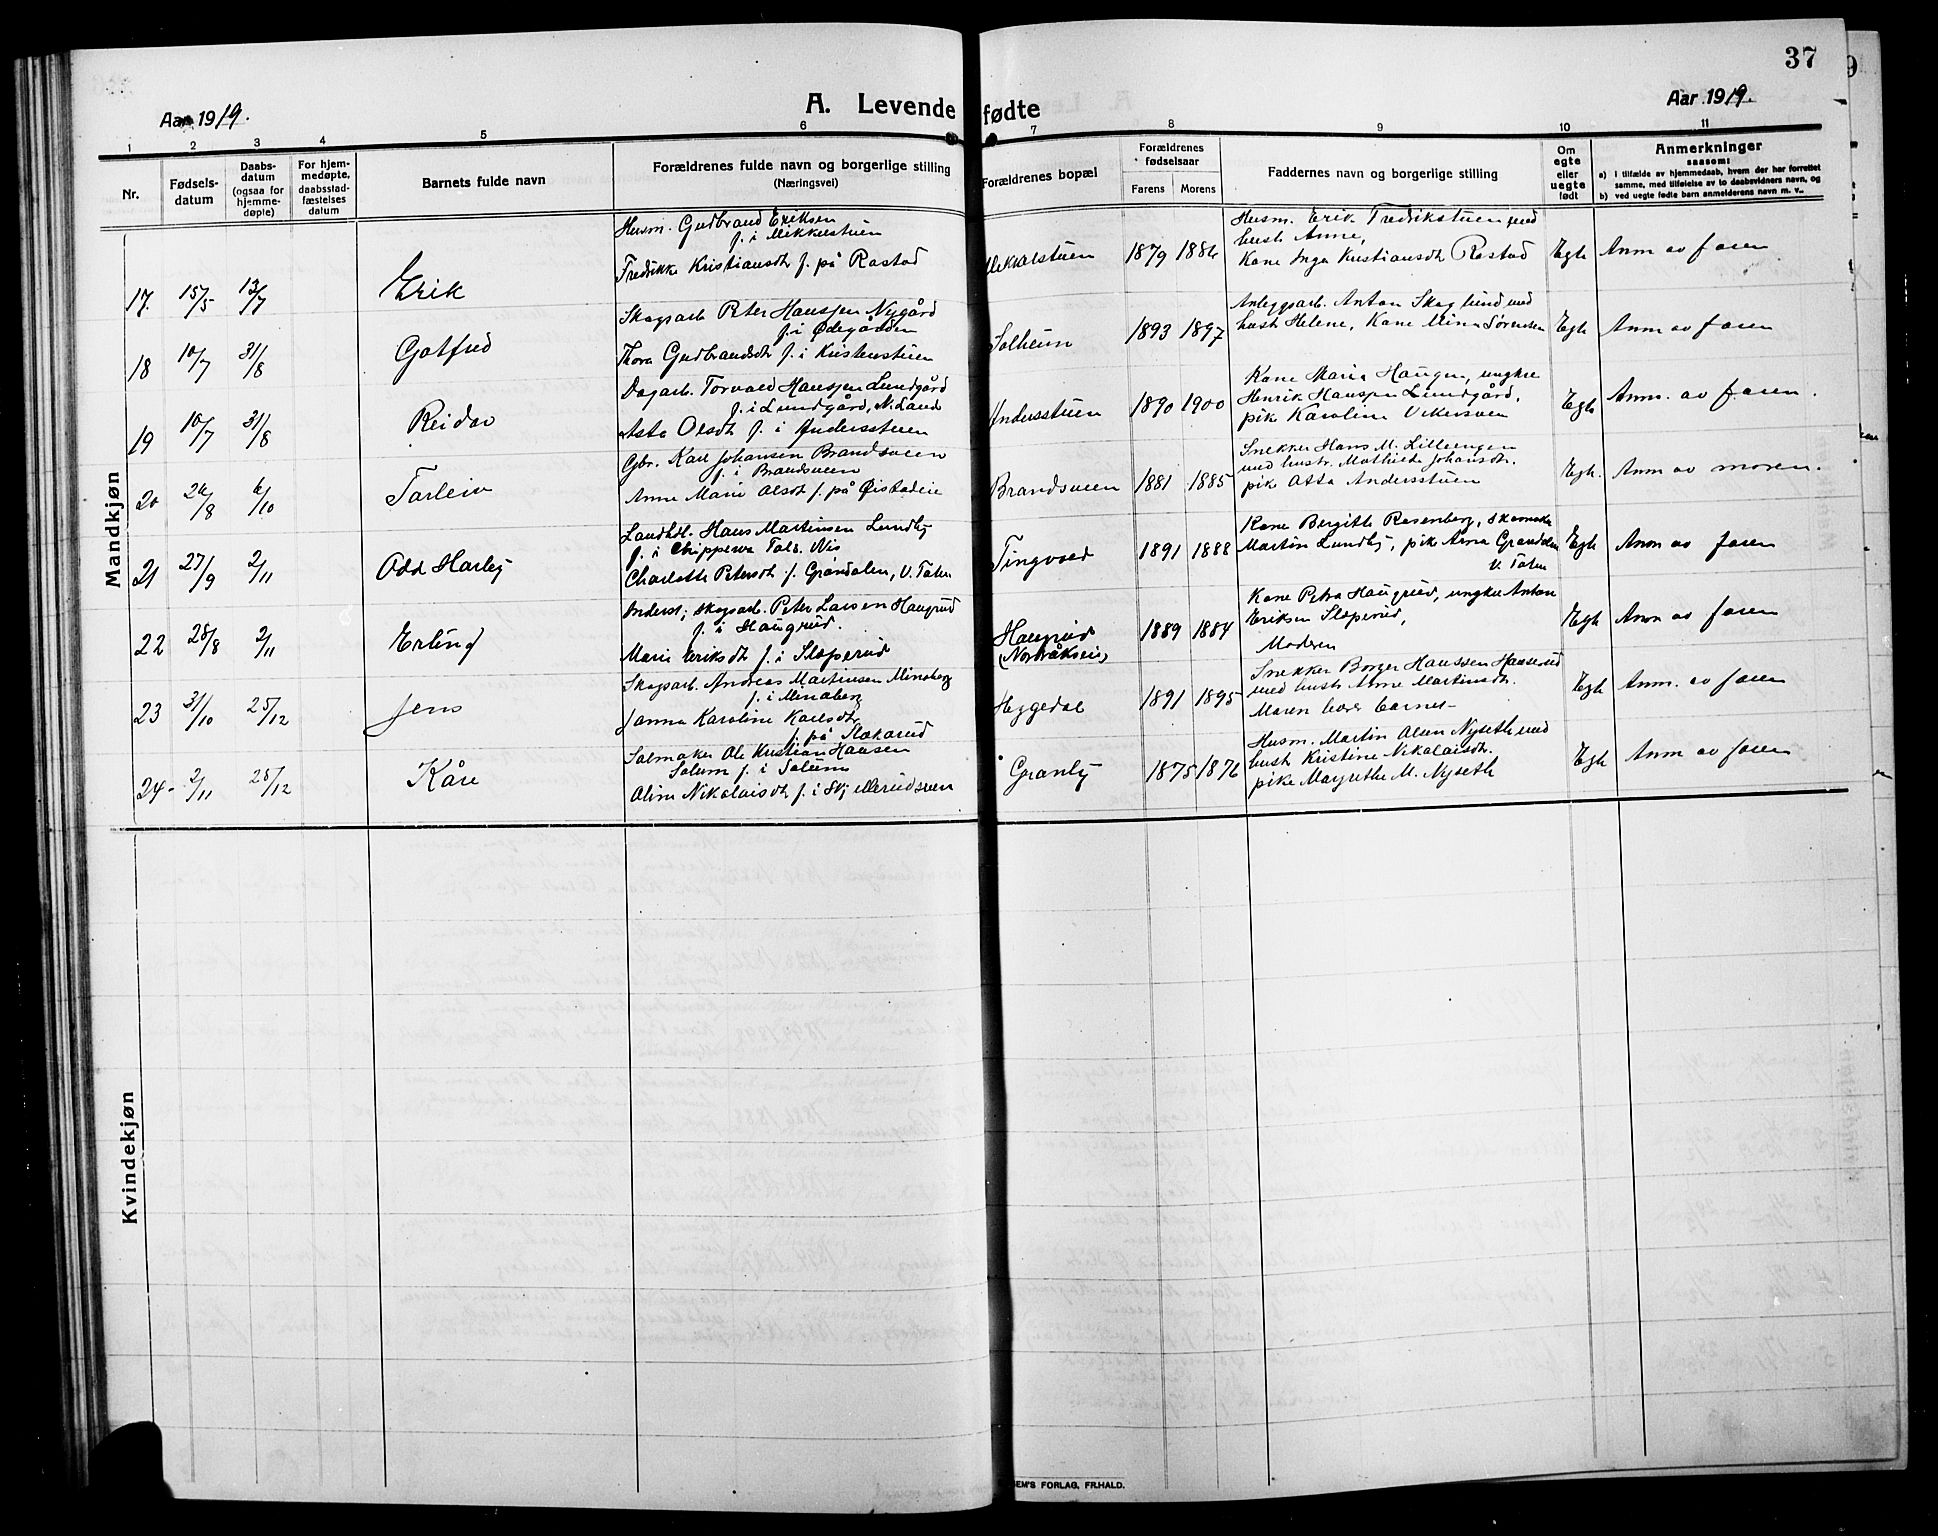 37
Aar 1919.
A. Levende fødte
Aar 1919.
1 2 3 4 5 6 7 8 9 10 11
Nr.
Fødsels-
datum
Daabs-
datum
(ogsaa for
hjemme-
døpte)
For hjem-
medøpte,
daabsstad-
fæstelses
datum
Barnets fulde navn
Forældrenes fulde navn og borgerlige stilling
(Næringsvei)
Forældrenes bopæl
Forældrenes
fødselsaar
Farens Morens
Faddernes navn og borgerlige stilling
Om
egte
eller
uegte
født
Anmerkninger
saasom:
a) I tilfælde av hjemmedaab, hvem der har forrettet
samme, med tilføielse av to daabsvidners navn, og
b) ved uegte fødte barn anmelderens navn m. v..
Mandkjøn
17. 15/5 13/7 Erik
Husm. Gudbrand Eriksen
f. i Mikkelstuen
Fredrikke Kristiansdt f. på Rastad
Mikkelstuen 1879 1886
Husm. Erik Fredrikstuen med
hust Anne,
Kone Inga Kristiansdt Rastad
Egte Anm av faren
18 10/7 31/8 Gotfred
Skogsarb Peter Hanssen Nygård
f. i Ødegården
Thora Gudbrandsdt f. i Kristenstuen
Solheim 1893 1897
Anleggsarb. Anton Skoglund med
hust Helene, Kone Mina Sørensen
Egte Anm av faren
19 10/7 31/8 Reidar
Dagarb. Torvald Hanssen Lundgård
f. i Lundgård, N. Land
Asta Olsdt f. i Andersstuen
Andersstuen 1890 1900
Kone Maria Haugen, ungkar
Henrik Hanssen Lundgård,
pik Karoline
Egte Anm. av faren.
20 26/8 6/10 Torleiv
Gbr. Karl Johansen Brandsveen
f. i Brandsveen
Anne Marie Olsdt f. på Øistadeie
Brandsveen 1881 1885
Snekker Hans M. Lillvengen
med hustr. Mathilde Johansdt.
pik Otta Andersstuen
Egte. Anm av moren.
21 27/9 2/11 Odd Harley
Landhdl. Hans Martinsen Lundby
f. i Chippewa Fals. Wis
Charlotte Petersdt f. Grandalen, V. Toten
Tingvold 1891 1888
Kone Bergitte Rosenberg, skomaker
Martin Lundby, pik Anna Grandalen
V. Toten
Egte Anm av faren
22 28/8 2/11 Erling
Inderst; skogsarb. Peter Larsen Haugrud
f. i Haugrud.
Marie Eriksdt f. i Sloperud
Haugrud
1889 1884
Kone Petra Haugrud, ungkar Anton
Eriksen Sloperud,
Moderen
Egte Anm av faren
23 31/10 25/12 Jens
Skogsarb. Andreas Martinsen Minaberg
f. i Minaberg
Janna Karoline Karlsdt
f. på Slokarud
Heggedal 1891 1895
Snekker Borger Hanssen
med hust Anne Martinsdt.
Moren bærer barnet—
Egte Anm. av faren
24 2/11 25/12 Kåre
Salmaker Ole Kristian Hansen
Solum f. i Solum
Oline Nikolaisdt f. i Skjellerudsveen
Granly 1875 1876
Husm. Martin Olsen Nyseth med
hust Kristine Nikolaisdt.
pike Margrethe M. Nyseth
Egte Anm av faren
Kvindekjøn
EM'S FORLAG, FR.HALD.